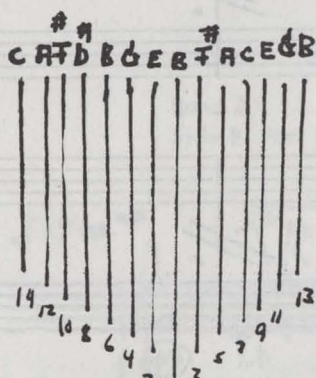 # # #
C A F D B G E B F A C E G B
14 12 10 8 6 4 3 5 7 9 11 13